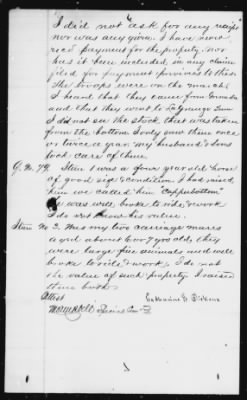 I did not ask for any receipt
nor was any given. I have never
recd payment for the property. nor
has it been included in any claim
filed for payment previous to this.
The troops were on the march
I heard that they came from
and that they went to Lagrange Tenn
I did not see the stock, that was taken
from the bottom I only saw them once
or twice a year my husband & sons
took care of them.
Item 1 was a four year old horse
of good size & condition. I had raised
him we called him "Copperbottom"
He was well broke to ride & work
I do not know his value.
Item No 2. Was my two carriage mares
aged about 6 or 7 years old, they
were large fine animals and well
broke to ride & work. I do not
the value of such property I raised
them both.
Attest
Catharine G. Dickens
Special Com